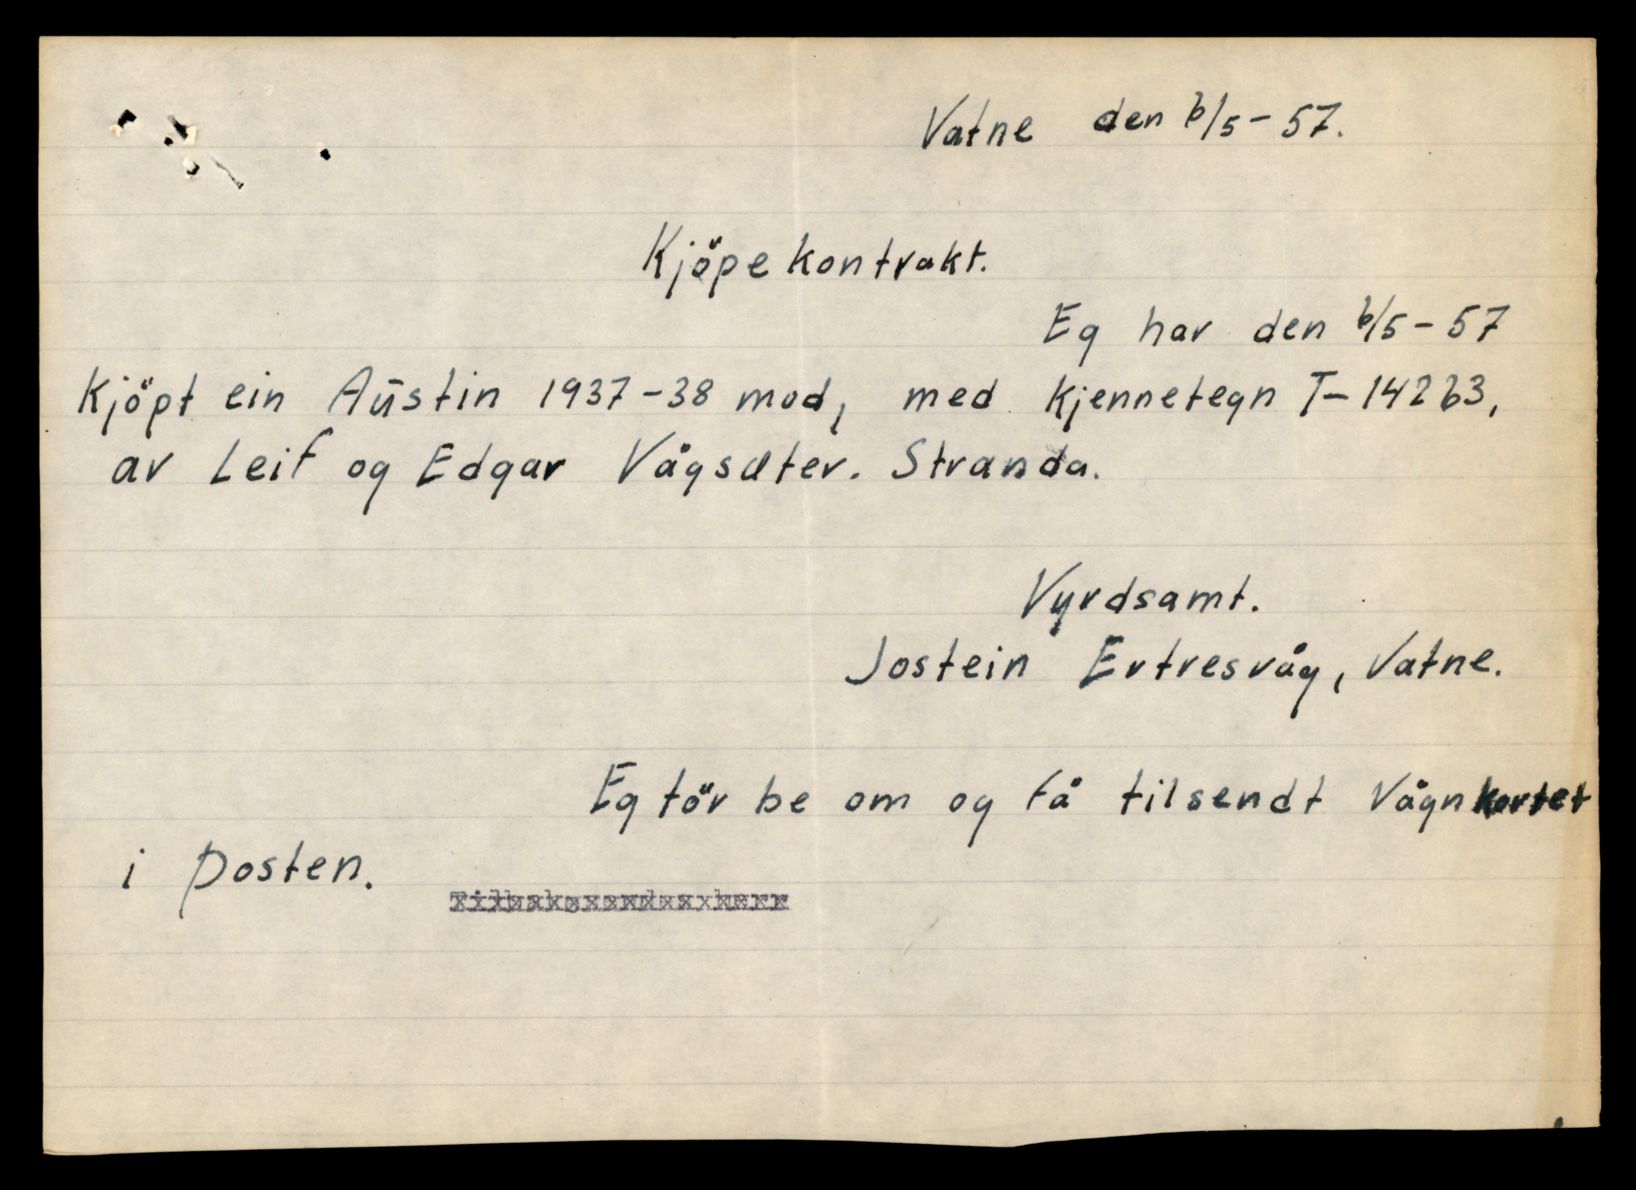 Vatne den 6/5-57.
Kjöpekontrakt.
Eg har den 6/5-57
Kjöpt ein Aūstin 1937-38 mod, med kjennetegn T-14263,
av Leif og Edgar Vågsæter. Stranda.
Vyrdsamt.
Jostein Ertresvåg, Vatne.
Eg tör be om og få tilsendt Vågnkortet
i posten.